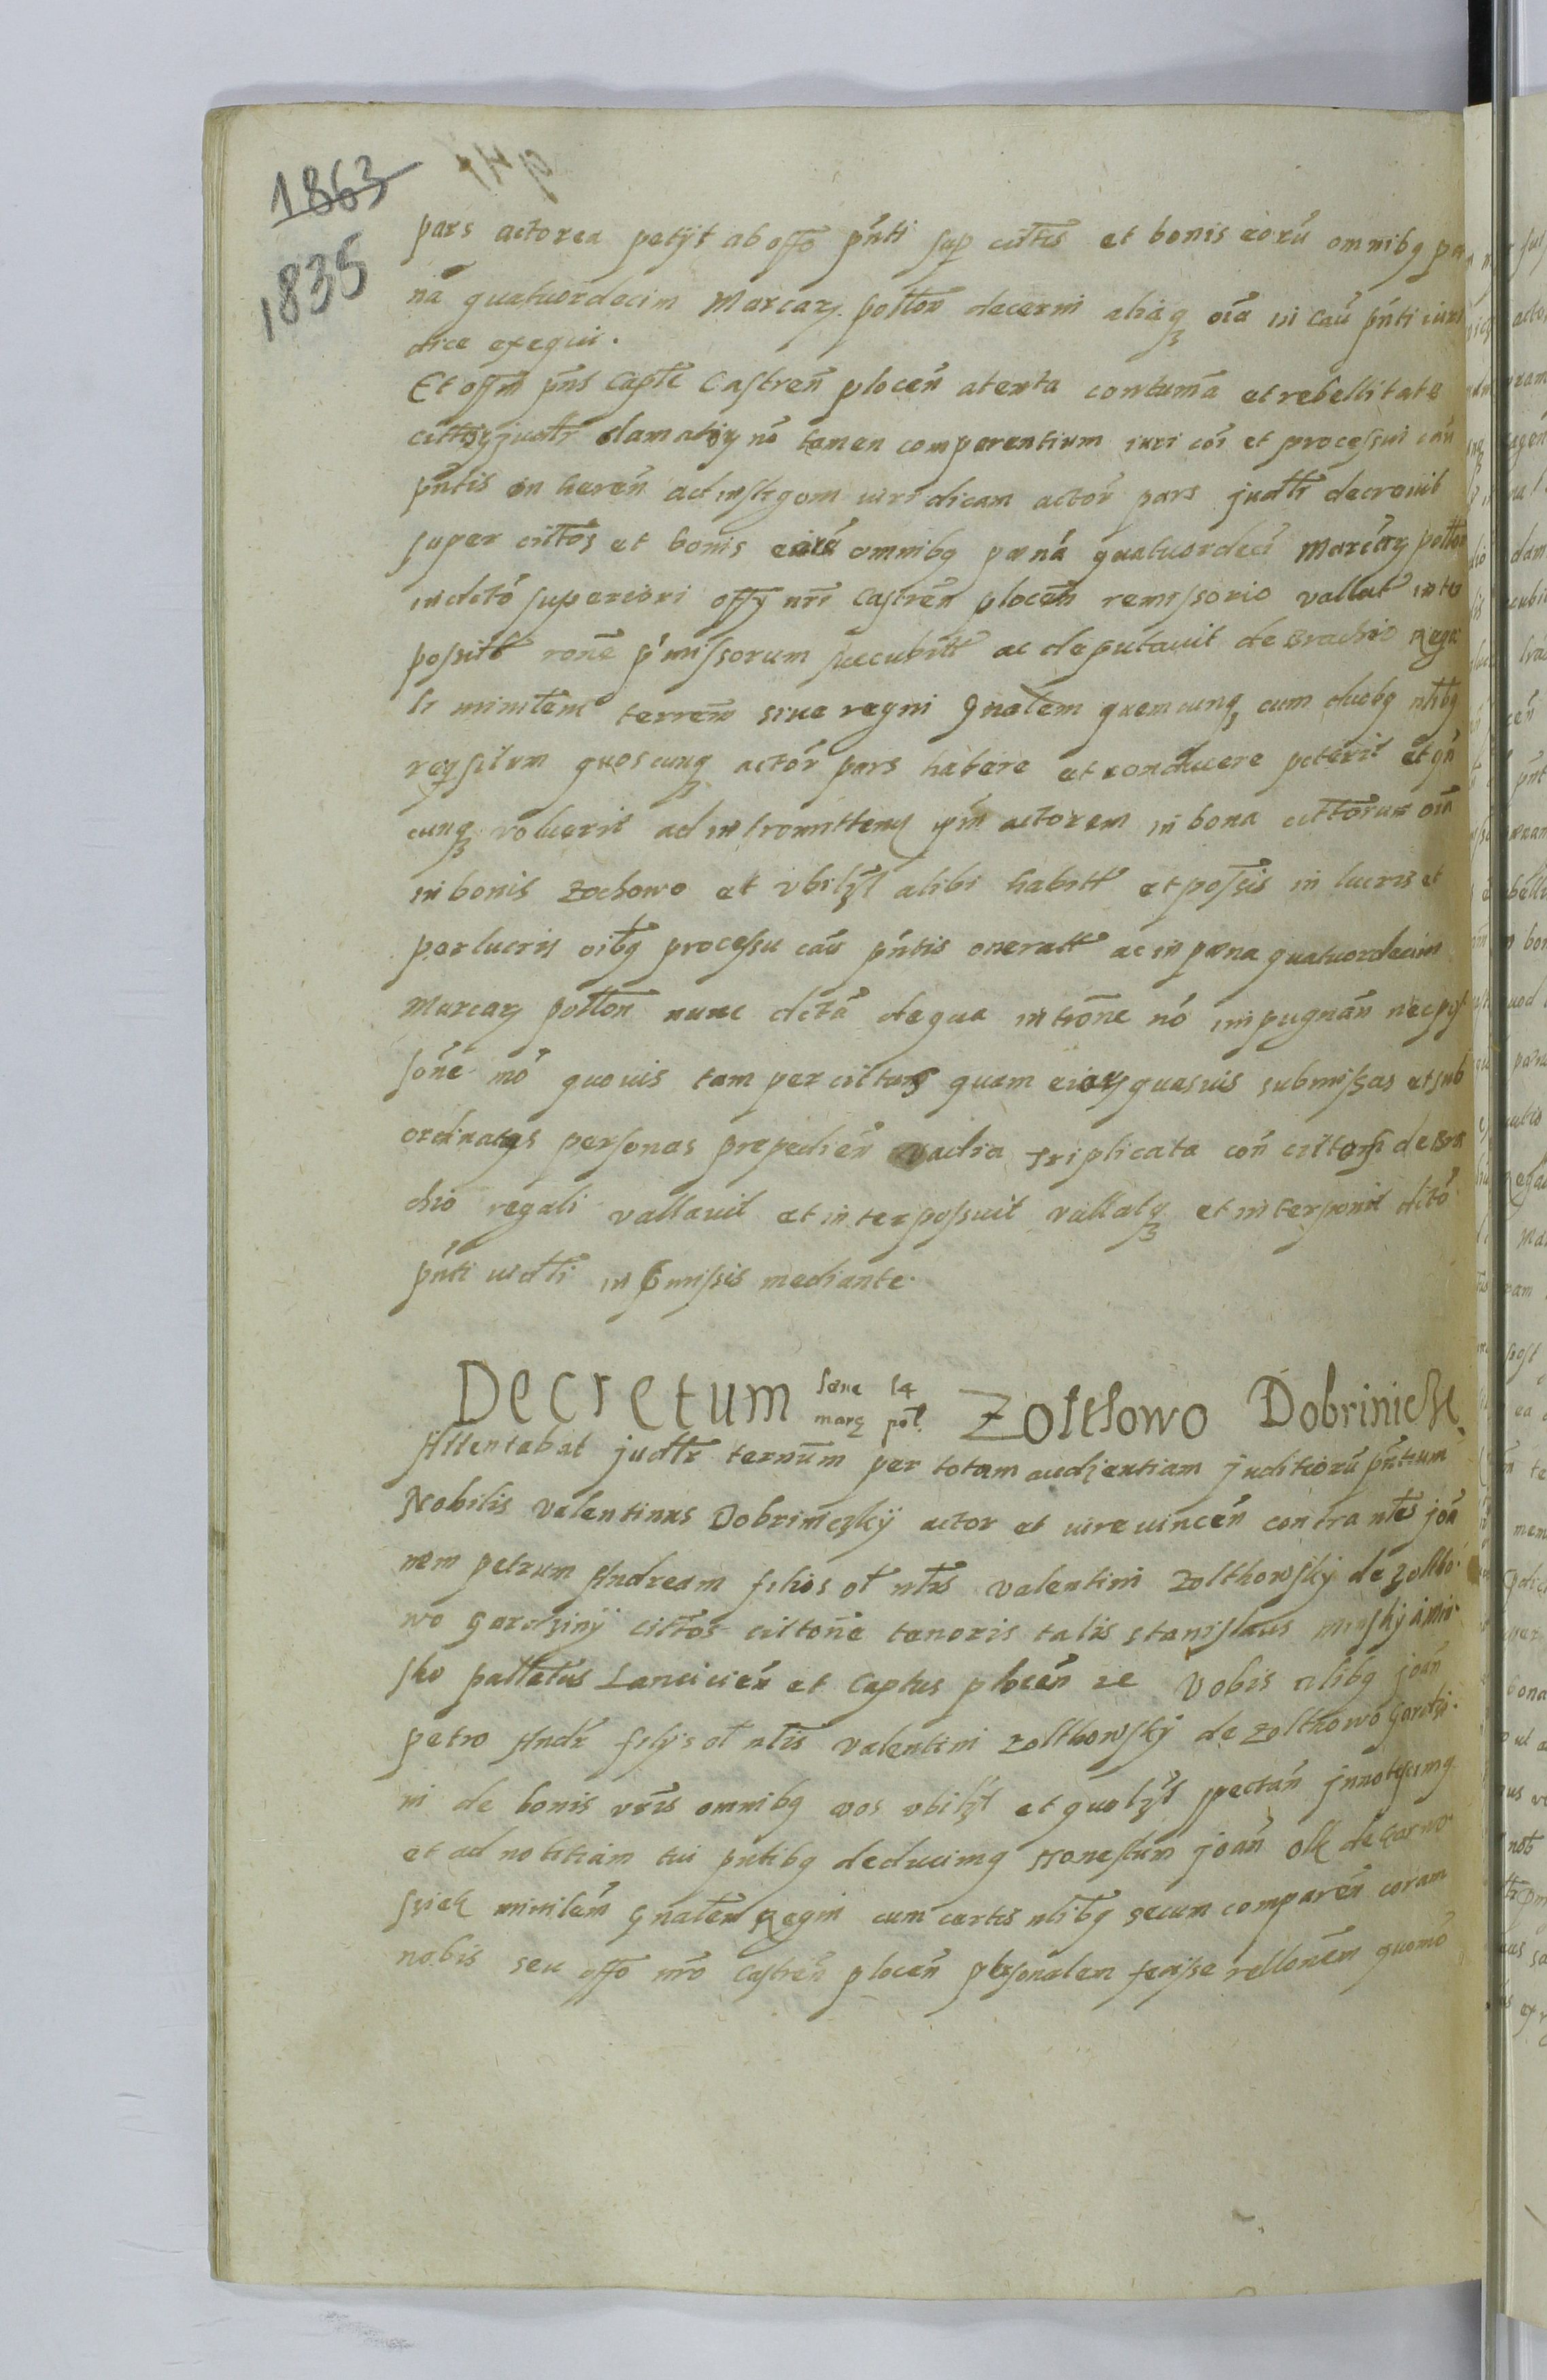 1863
1835
pars actorea petÿt ab offõ pñti sup citťis et bonis eorũ omnibq pœ
nã quatuordecim Marcarʒ polloñ decerni aliaqʒ oĩa in Caũ pñti iuri
dice exequi.
Et offm̃ pñs Capťle Castreñ ploceñ atenta contumã et rebellitate
cittorʒ judťr clamatorʒ nõ tamen comparentium iuri cõi et processui cau
pñtis in hæreñ ad instgom iuridicam actor pars judťr decrevit
super cittos et bonis eorũ omnibq pœnã quatuordecĩ Marcarʒ polloñ
in dcto superiori offÿ nri Castreñ ploceñ remissorio vallat inter
possitt rone pmissorum succubitt ac deputauit de Brachio Rega
li minisťem terreñ siue regni Gnalem quemcunqʒ cum duobq nlibq
reqsitum quoscunqʒ actor pars habere et conducere poterit et qñ
cunqʒ voluerit ad intromitteñ ipm actorem in bona cittorum oĩa
in bonis Zochowo et vbilʒt alibi habitt et possis in lucris et
perlucris oibq processu caũ pñtis oneratt ac in pœna quatuordecim
Marcarʒ polloñ nunc dctã de qua intrõne nõ impugnañ nec pos
sõne mõ quouis tam per cittos quam eiorʒ quasuis submissas et sub
ordinatas personas prepedieñ vadia triplicata coñ cittos de Bra
chio regali vallauit et interposuit vallatqʒ et interponit dctõ
pñti iudťi in pmissis mediante.
Decretum pœne 14 marc pol. Zolthowo Dobriniczk
Attentabat judťr ternum per totam audientiam juditiorũ pñtium
Nobilis Valentinus Dobriniczkÿ actor et iure uinceñ contra nťles joã
nem petrum Andream filios oł nťlis Valentini Zolthowskÿ de Zoltho
wo Gardzinÿ cittos cittõne tenoris talis Stanislaus minskÿ de min
sko pallatũs Lancicieñ et Captus ploceñ ze Vobis nlibq joañ
petro Andr filÿs oł nťlis Valentini Zolthowskÿ de Zolthowo Gardzi
ni de bonis vris omnibq vos vbilʒt et quolʒt spectañ jnnotescimq
et ad notitiam tui pñtibq deducimq Honestum joañ Olk de Gorno
sziek ministem Gnalem Regni cum certis nlibq secum compareñ coram
nobis seu offõ nrõ Castreñ ploceñ personalem fecisse rellonem quomõ